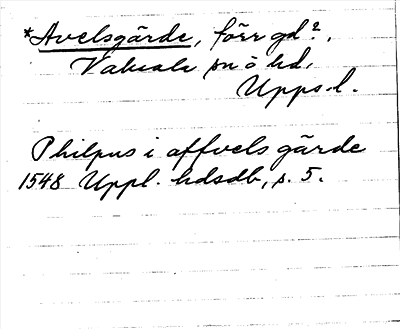 *Avelsgärde, förr gd?,
Vaksala sn o hd,
Upps. l.
Philpus i affvels gärde
1548 Uppl. hdsdb, s. 5.